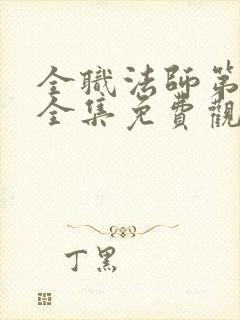 全職法師第
全集免費觀
丁黑